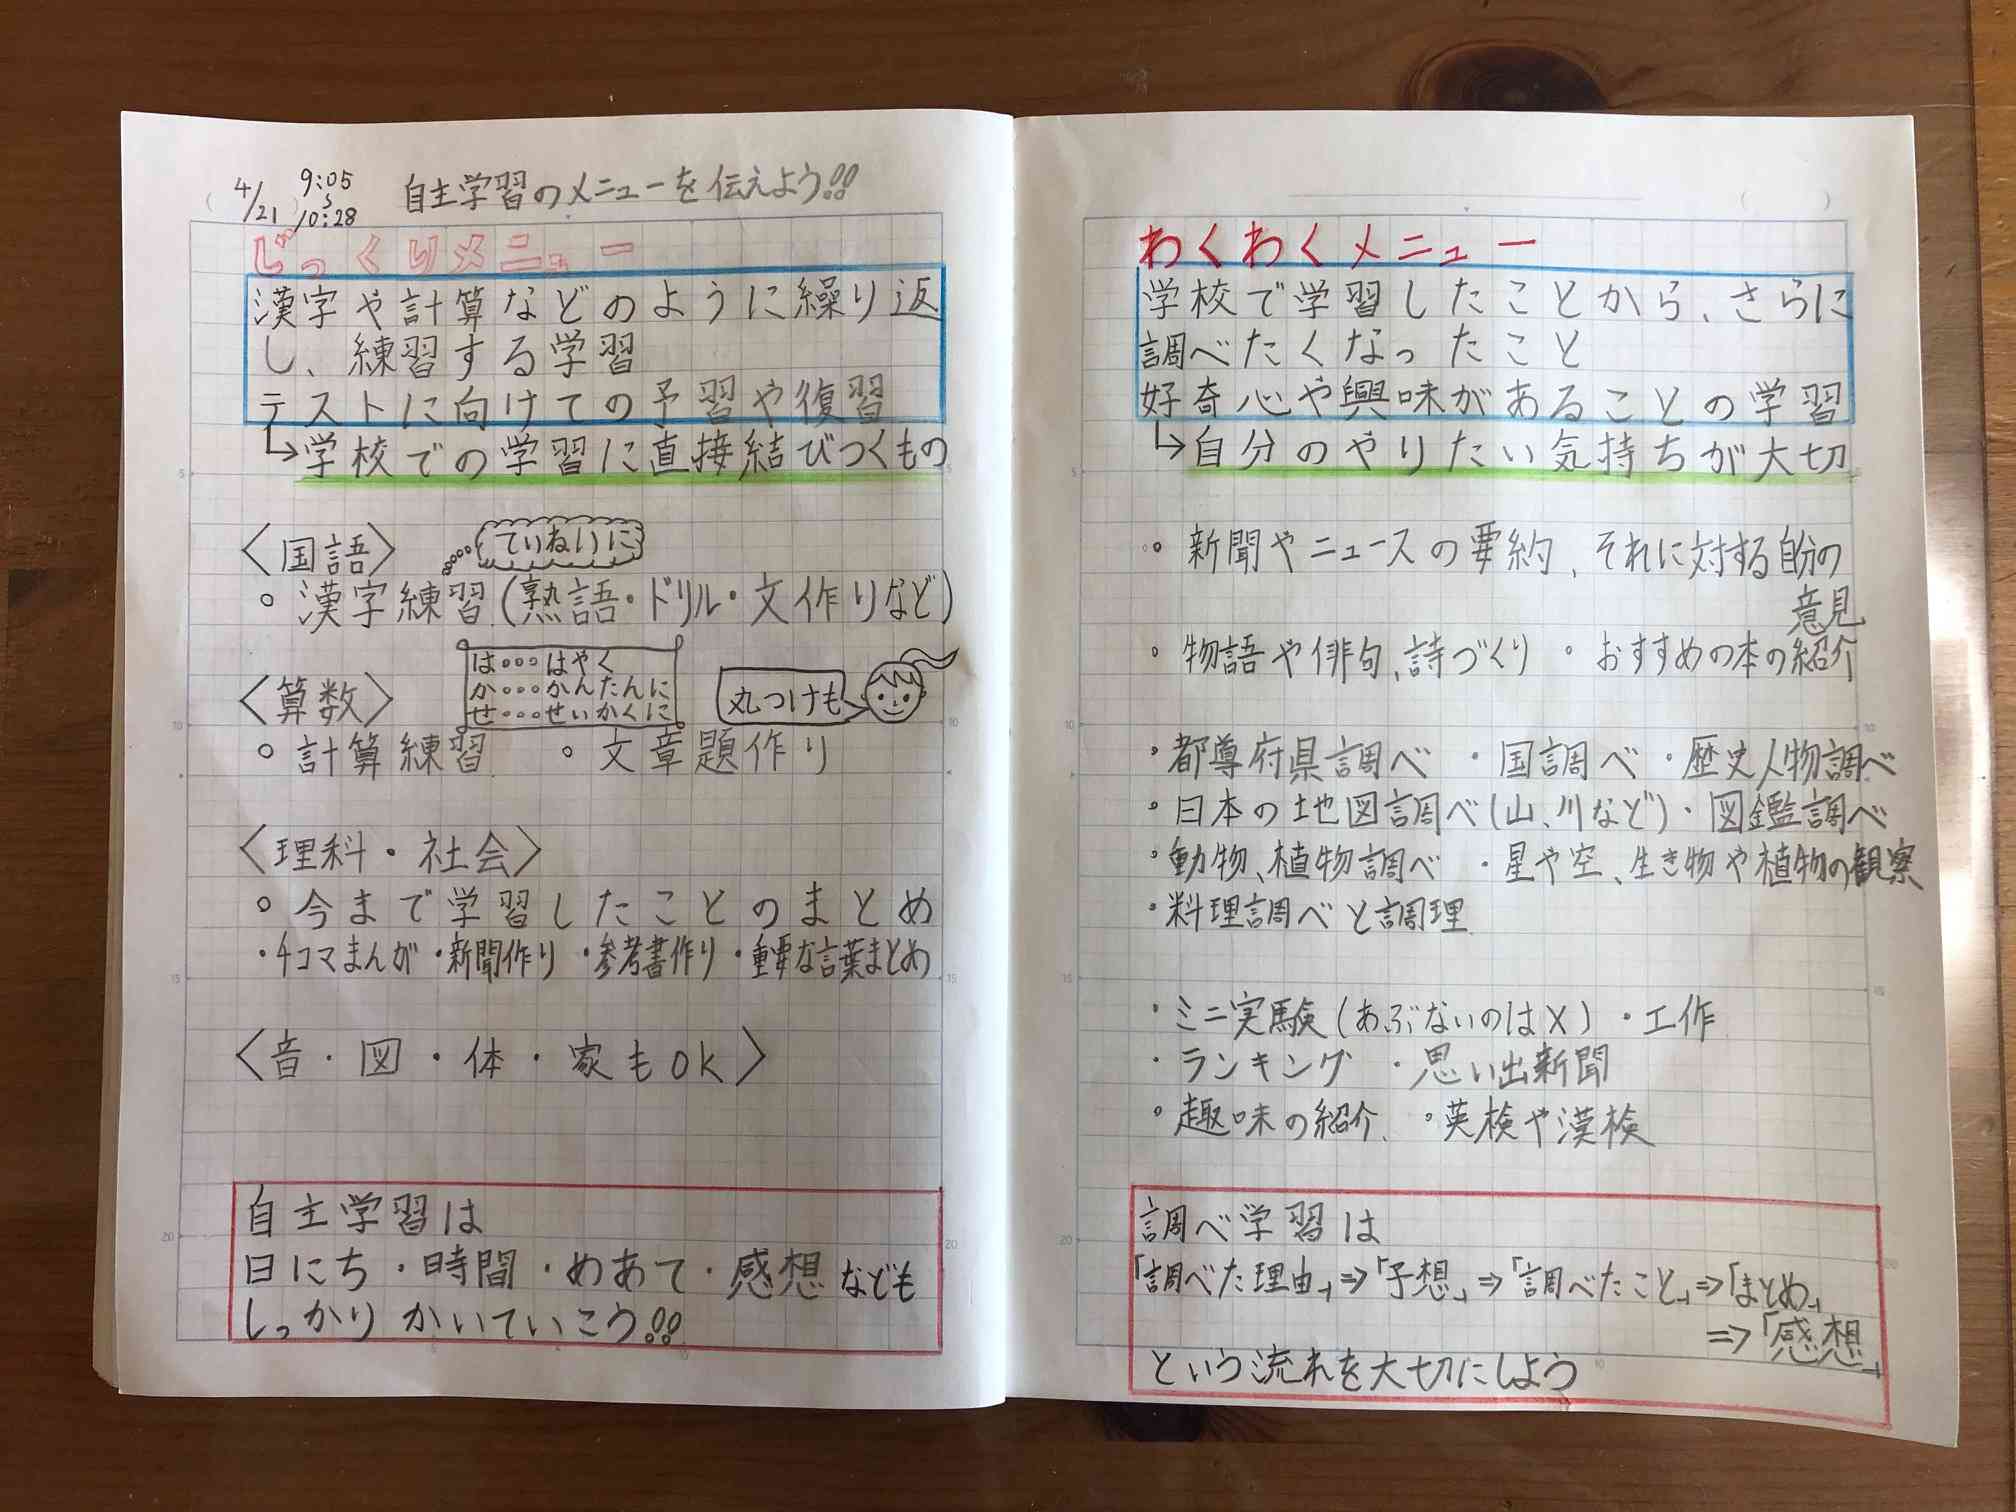 4/21 9:05〜10:28 自主学習のメニューを伝えよう!!
じっくりメニュー
漢字や計算などのように繰り返
し、練習する学習
テストに向けての予習や復習
↳学校での学習に直接結びつくもの
〈国語〉 ていねいに
。漢字練習(熟語・ドリル・文作りなど)
は...はやく
か...かんたんに
せ...せいかくに
〈算数〉 丸つけも
。計算練習 。文章題作り
〈理科・社会〉
。今まで学習したことのまとめ
・4コマまんが・新聞作り・参考書作り・重要な言葉まとめ
〈音・図・体・家もOK〉
自主学習は
日にち・時間・めあて・感想なども
しっかりかいていこう!!
わくわくメニュー
学校で学習したことから、さらに
調べたくなったこと
好奇心や興味があることの学習
↳自分のやりたい気持ちが大切
。新聞やニュースの要約、それに対する自分の
意見
。物語や俳句、詩づくり 。おすすめの本の紹介
・都導府県調べ ・国調べ ・歴史人物調べ
・日本の地図調べ(山、川など)・図鑑調べ
・動物、植物調べ ・星や空、生き物や植物の観察
・料理調べと調理
・ミニ実験(あぶないのは×) ・工作
・ランキング ・思い出新聞
。趣味の紹介 。英検や漢検
調べ学習は
「調べた理由」⇒「予想」⇒「調べたこと」⇒「まとめ」
⇒「感想」
という流れを大切にしよう
5
10
15
20
5
10
15
20
5
10
5
10
15
20
10
15
20
10